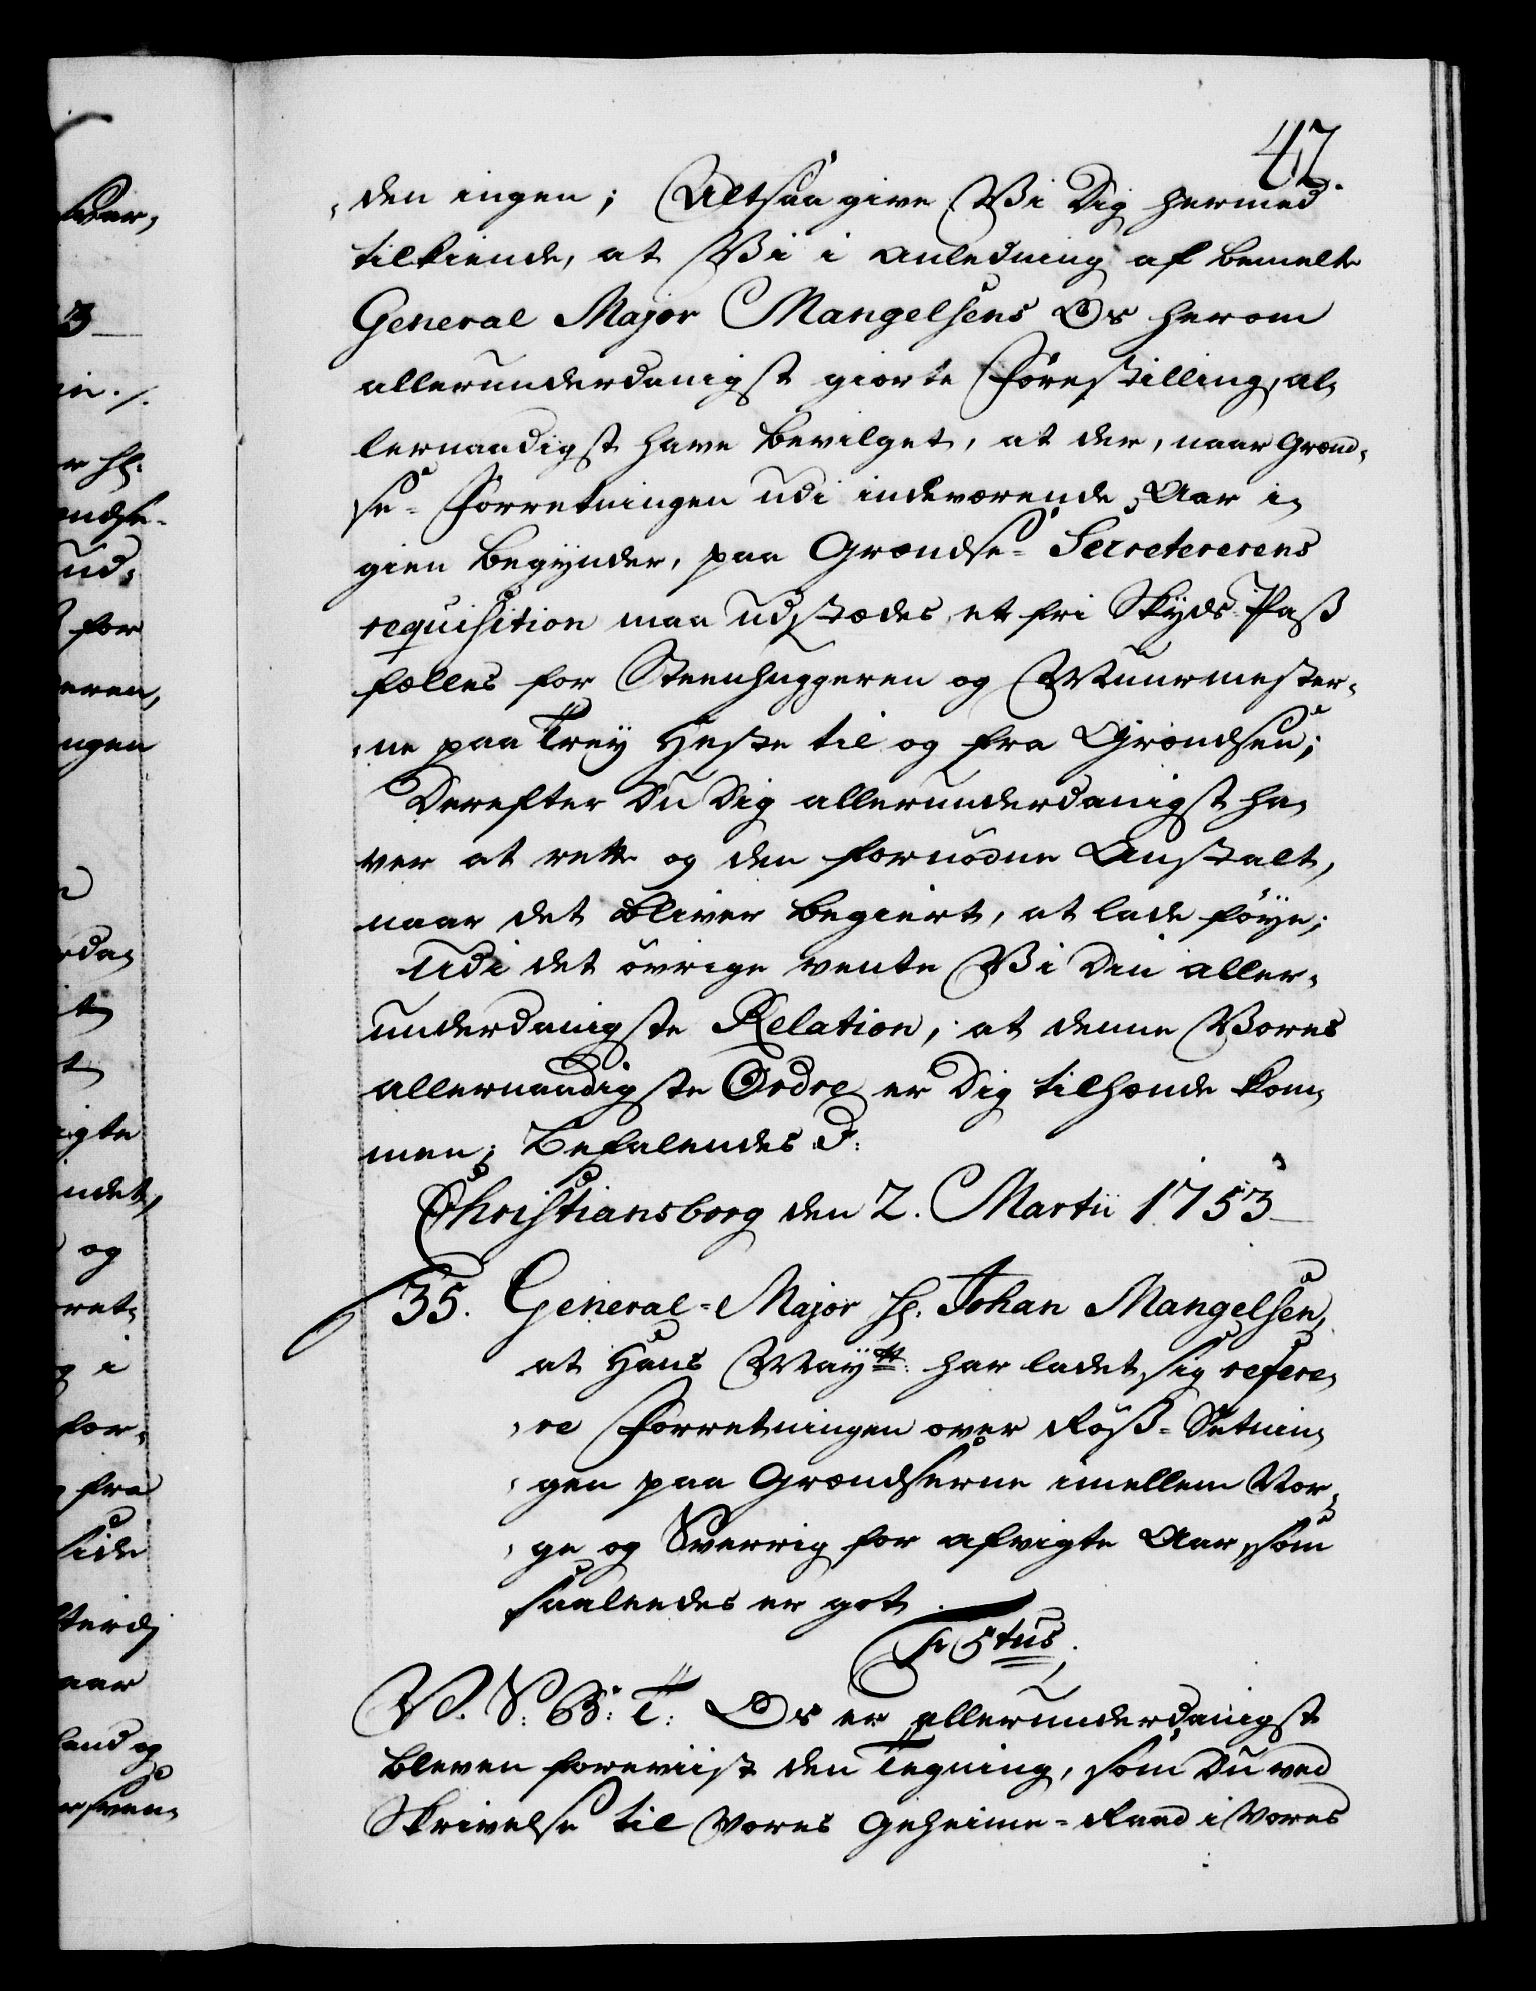 47.
den ingen; Altsaa give Vi Dig hermed
tilkiende, at Vi i anledning af bemelte
General Major Mangelsens Os herom
allerunderdanigst giorte Forestilling, al-
lernaadigst have bevilget, at der, naar Grænd-
se-Forretningen udi indeværende Aar i-
gien begynder, paa Grændse-Secreterens
requisition maa udstædes et fri Skyds-Pass
fælles for Steenhuggeren og Muurmester-
ne paa Trey Heste til og fra Grændsen;
Derefter Du Dig allerunderdanigst ha-
ver at rette og den fornödne Anstalt,
naar det bliver begiert, at lade föye;
Udi det övrige vente Vi Din aller-
underdanigste Relation, at denne Vores
allernaadigste Ordre er Dig tilhænde kom-
men; Befalendes D:
Christiansborg den 2. Martii 1753
35. General-Major Hr. Johan Mangelsen,
at Hans Maytt: har ladet sig refere-
re Forretningen over Röss-Setnin-
gen paa Grændserne imellem Nor-
ge og Sverrig for afvigte Aar, som
saaledes er got.
F 5tus
V. S: B: T: Os er allerunderdanigst
bleven foreviist den Tegning, som Du ved
Skrivelse til Vores Geheime-Raad i Vores